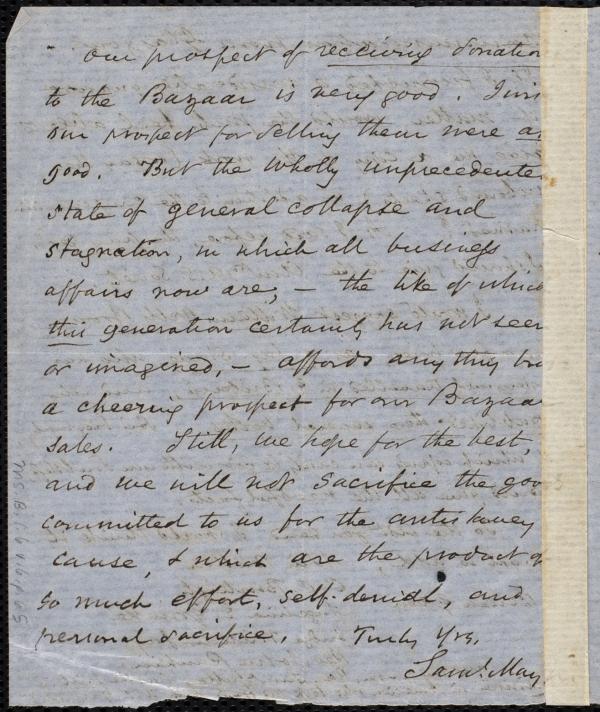 Our prospect of receiving donation
to the Bazaar is very good.
our prospect for selling them were as
good. But the wholly unprecedente
state of general collapse and
stagnation, in which all business
affairs now are, — the like of which
this generation certainly has not seen
or imagined, — affords any thing bu
a cheering prospect for our Bazaa
sales. Still, we hope for the best,
and we will not sacrifice the goo
committed to us for the antislavery
cause, & which are the product of
so much effort, self-denial, and
personal sacrifice. Truly Yrs,
Saml. May